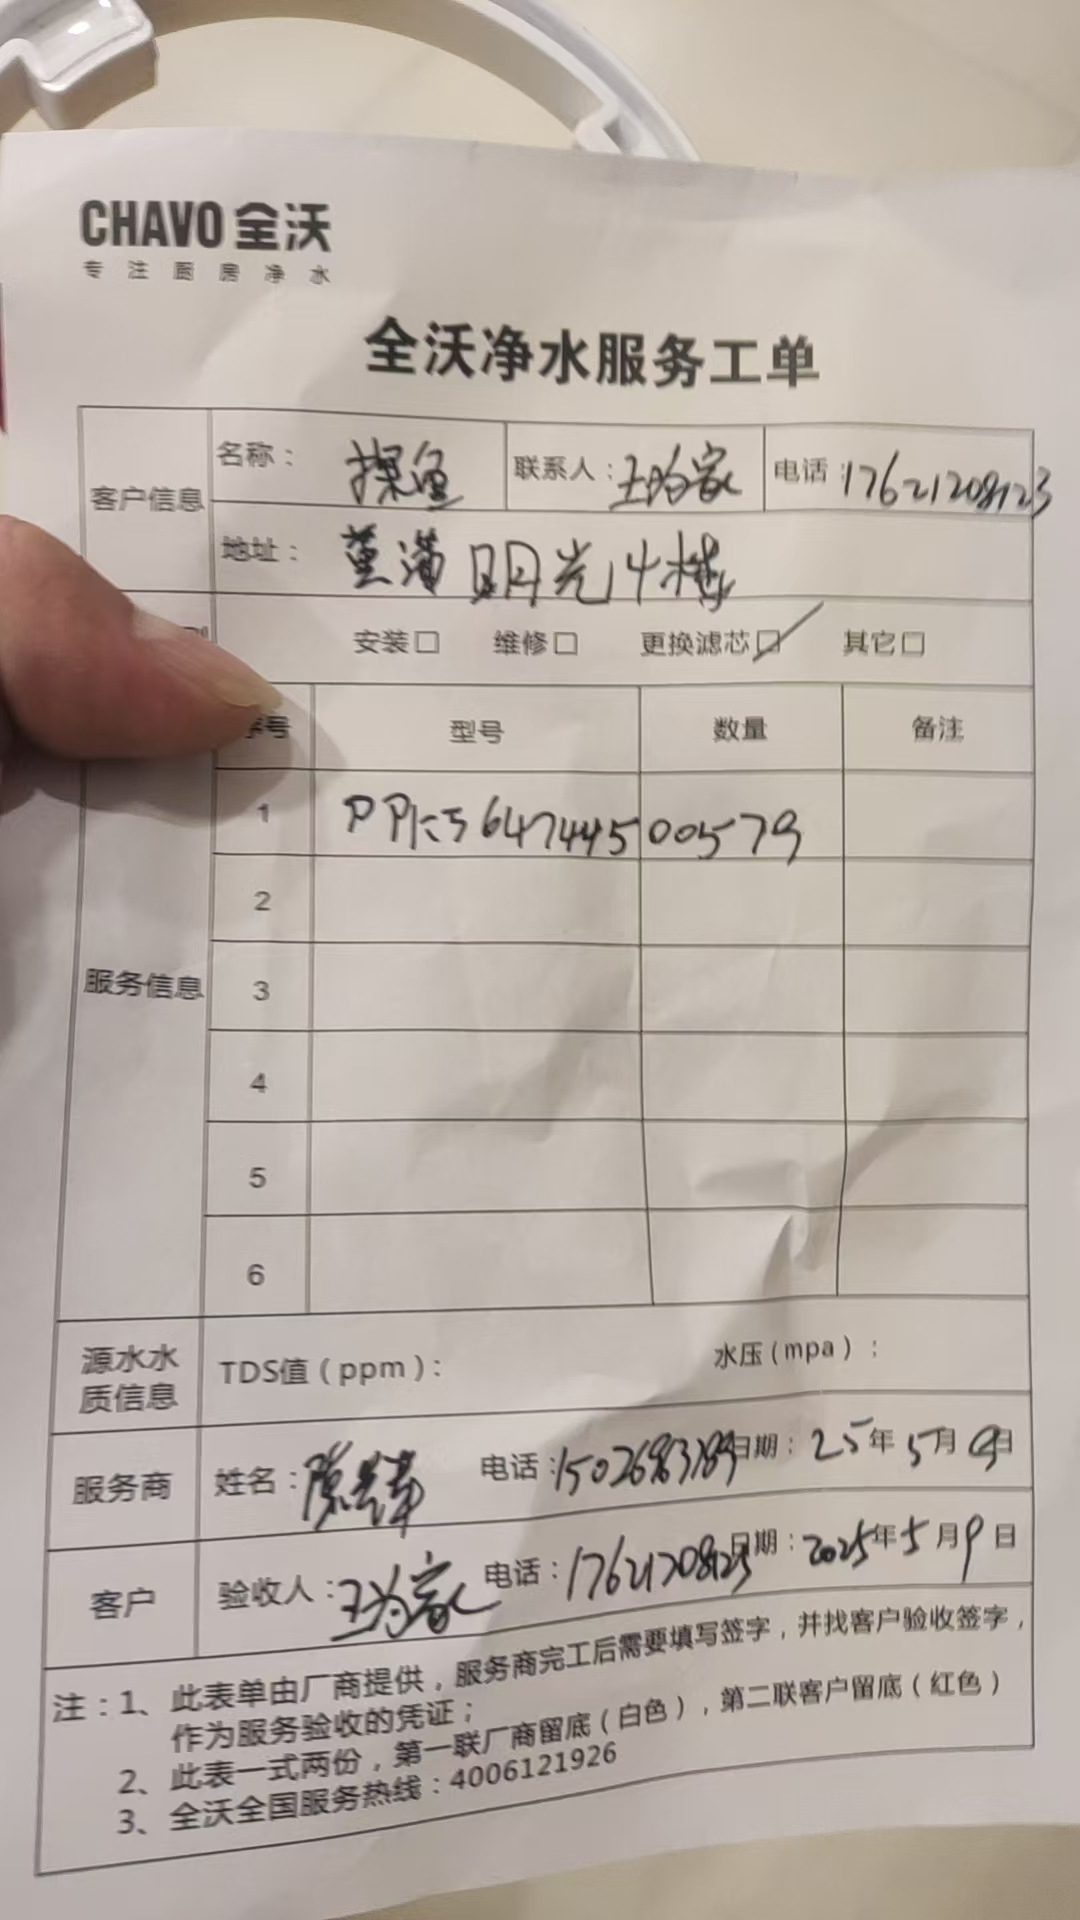 CHAVO 全沃
专注厨房净水
全沃净水服务工单
客户信息
名称： 探鱼 联系人：王为家 电话：17621208123
地址： 明光 4楼
安装□ 维修□ 更换滤芯☑ 其它□
服务信息
序号 型号 数量 备注
1 564744500579
2
3
4
5
6
源水水质信息
TDS值（ppm）： 水压（mpa）：
服务商 姓名：陈 电话： 日期：25年5月9日
客户 验收人：王为家 电话：17621208123 日期：2025年5月9日
注：1、此表单由厂商提供，服务商完工后需要填写签字，并找客户验收签字，
作为服务验收的凭证；
2、此表一式两份，第一联厂商留底（白色），第二联客户留底（红色）
3、全沃全国服务热线：4006121926